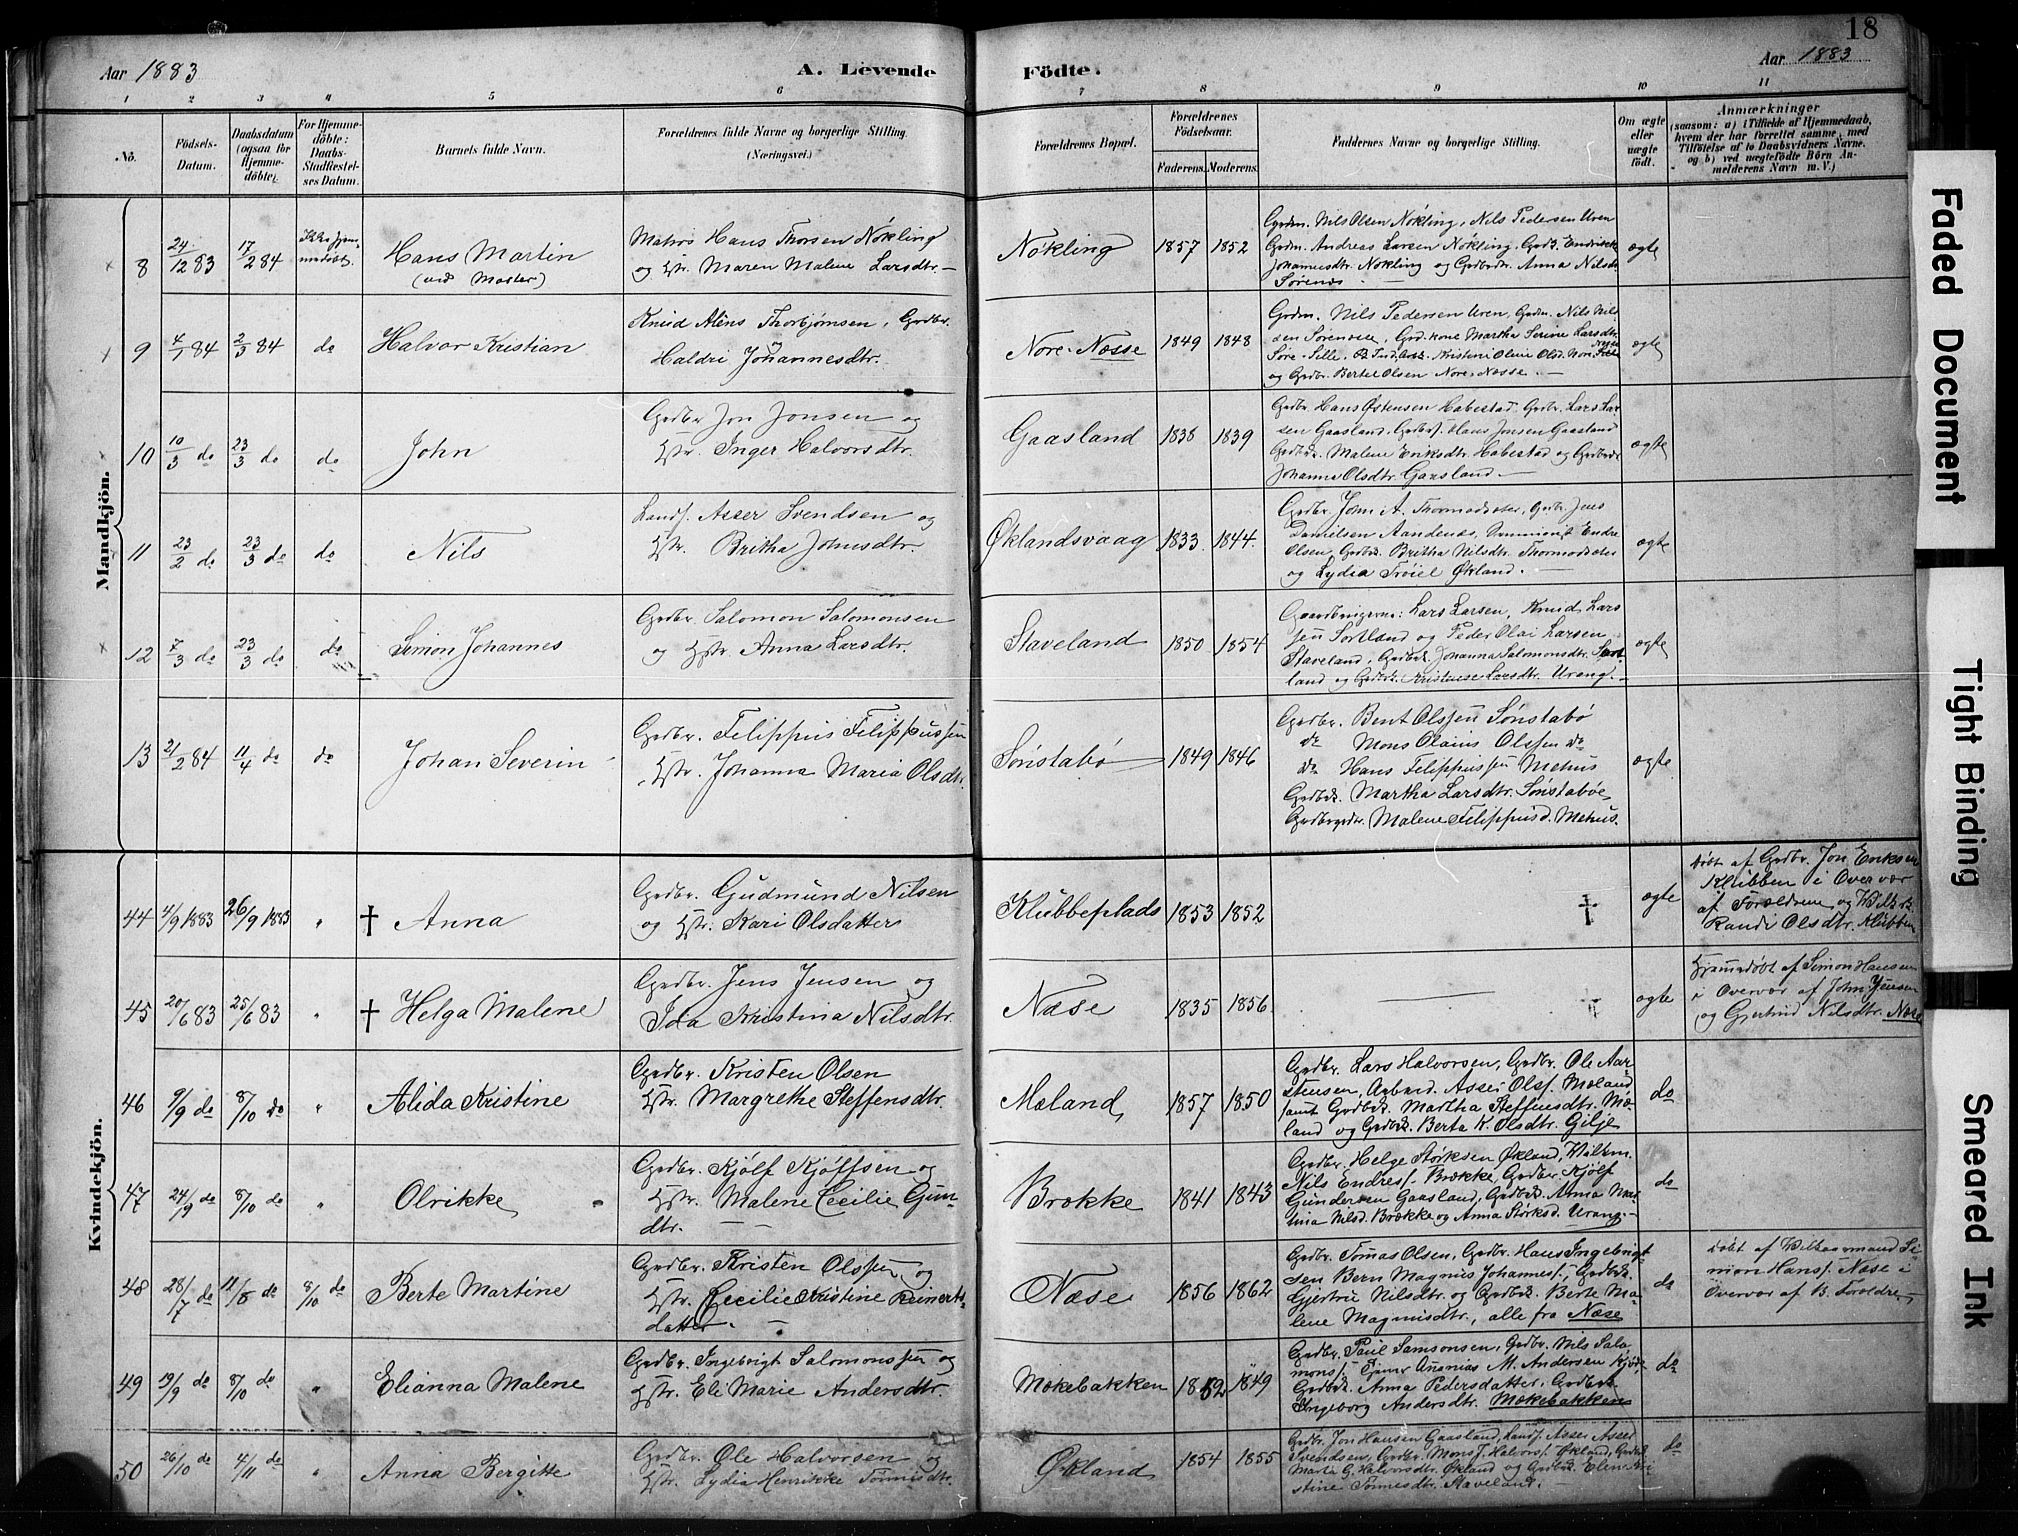 18
Aar 1883
A. Levende
Födte.
Aar 1883
1 2 3 4 5 6 7 8 9 10 11
No.
Födsels-
Datum.
Daabsdatum
(ogsaa for
Hjemme-
döbte).
For Hjemme-
döbte:
Daabs-
Stadfæstel-
ses Datum.
Barnets fulde Navn.
Forældrenes fulde Navne og borgerlige Stilling.
(Næringsvei.)
Forældrenes Bopæl.
Forældrenes
Födselsaar.
Faderens.
Moderens.
Faddernes Navne og borgerlige Stilling.
Om ægte
eller
uægte
födt.
Anmærkninger
(saasom: a) i Tilfælde af Hjemmedaab,
hvem der har forrettet samme, med
Tilföielse af to Daabsvidners Navne.
og b) ved uægtefödte Börn An-
melderens Navn m. V.)
Mandkjön.
8
24/12 83
17/2 84
Hans Martin
Matros Hans Thorsen Nøkling
og Hstr. Maren Malene Larsdtr.
Nøkling
1857
1852
Grdm. Nils Olsen Nøkling, Nils Pedersen Uren
Grdm. Andreas Larsen Nøkling, Grdk.
Johannesdtr. Nøkling og Grdbdtr. Anna Nilsdtr.
Sørenes
ægte
9
84
2/3 84
do
Halvor Kristian
Knud Thorbjørnsen, Grdbr.
Johannesdtr.
Nore-Næsse
1849
1848
Grdm. Nils Pedersen Uren, Grdm. Nils Nil
sen, Grd. kone Martha Serine Larsdtr.
Søre-Sille, Kristine Oline Olsd.
og Grdbr. Bertel Olsen Nore-Næsse.
ægte
10
10/3 do
23/3 do
do
John
Grdbr. Jon Jonsen og
Hstr. Inger Halvorsdtr.
Gaasland
1838
1839
Grdbr. Hans Østensen Habestad, Grdbr. Lars Lar
sen Gaasland, Hans Jensen Gaasland
Malene Eriksdtr. Habestad og
Johanna Olsdtr. Gaasland.
ægte
11
23/2 do
23/3 do
do
Nils
Asser Svendsen og
Hstr. Britha Johnsdtr.
Øklandsvaag
1833
1844
Grdbr. John A. Thormodsæter, Grdbr. Jens
Danielsen Aandenæs, Endre
Olsen, Britha Nilsdtr. Thormodsæter
og Lydia Trøiel Økland.
ægte
12
7/3 do
23/3 do
do
Simon Johannes
Grdbr. Salomon Salomonsen
og Hstr. Anna Larsdtr.
Staveland
1850
1854
Gaardbrugerne: Lars Larsen, Knud Lars
sen Sortland og Peder Olai Larsen
Staveland, Johanna Salomonsdtr. Sort
land og Larsdtr. Urang.
ægte
13
2/2 84
11/4 do
do
Johan Severin
Grdbr. Filippus Filippussen
Hstr. Johanna Maria Olsdtr.
Sønstabø
1849
1846
Grdbr. Bent Olssen Sønstabø
do Mons Olaius Olssen do
do Hans Filippussen Mehus
Martha Larsdtr. Sønstabøe
Malene Filippusd. Mehus.
ægte
Kvindekjön.
44
4/9 1883
26/9 1883
"
† Anna
Grdbr. Gudmund Nilsen
og Hstr. Kari Olsdatter
Klubbeplads
1853
1852
†
ægte
Døbt af Grdbr. Jon Eriksen
Klubben i Overvær
af Forældrene og
Randi Olsdtr. Klubben
45
20/6 83
25/6 83
"
† Helga Malene
Grdbr. Jens Jensen og
Ida Kristina Nilsdtr.
Næse
1835
1856
†
ægte
Hjemmedøbt af Simon Hansen
i Overvær af John Jensen
og Gjertrud Nilsdtr. Næse
46
9/9 do
8/10 do
"
Alida Kristine
Grdbr. Kristen Olsen
Hstr. Margrethe Steffensdtr.
Mæland
1857
1850
Grdbr. Lars Halvorsen, Grdbr. Ole Aar
stensen, Asser Olss. Mæland
samt Martha Steffensdtr. Mæ-
land og Berta K. Olsdtr. Gilje
do
47
24/9 do
8/10 do
"
Olrikke
Grdbr. Kjølf Kjølfsen og
Hstr. Malene Cecilie Gun-
dtr.
Brække
1841
1843
Grdbr. Helge Størksen Økland,
Nils Endress. Brække, Grdbr. Kjølf
Gundersen Gaasland, Anna Mar
tina Nilsd. Brække og Anna Størksd. Urang.
do
48
28/7 do
11/8 do
8/10 do
Berte Martine
Grdbr. Kristen Olssen og
Hstr. Cecilie Kristine Reinerts-
datter.
Næse
1856
1862
Grdbr. Tomas Olsen, Grdbr. Hans Ingebrigt
sen Bern Magnus Johanness.,
Gjertrud Nilsdtr. og Berte Ma-
lene Magnusdtr., alle fra Næse
do
Døbt af Si-
mon Hanss. Næse i
Overvær af B. Forældre
49
19/9 do
8/10 do
"
Elianna Malene
Grdbr. Ingebrigt Salomonssen og
Hstr. Eli Marie Andersdtr.
Mækebakken
1852
1849
Grdbr. Paul Samsonsen, Grdbr. Nils Sala
monss., Ananias M. Andersen
Anna Pedersdatter,
Ingeborg Andersdtr. Mækebakken
do
50
26/10 do
4/11 do
"
Anna Bergitte
Grdbr. Ole Halvorsen og
Hstr. Lydia Henrikke Tønnesdtr.
Økland
1854
1855
Grdbr. Jon Hansen Gaasland, Asser Asser
Svendsen, Grdbr. Mons J. Halvorss. Økland,
Marta G. Halvorsdtr. Økland og Elen Kri
stine Tønnesdtr. Staveland.
do
Faded Document
Tight Binding
Smeared Ink